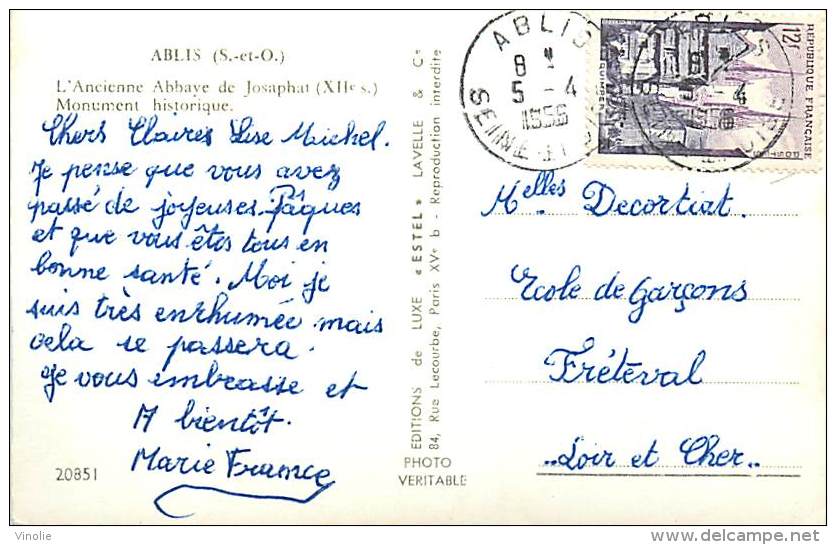 ABLIS (S.-et-O.)
L'Ancienne Abbaye de Josaphat (XIIe s.)
Monument historique.
Chers Claires Lise Michel.
Je pense que vous avez
passé de joyeuses Pâques
et que vous êtes tous en
bonne santé. Moi je
suis très enrhumée mais
cela se passera.
Je vous embrasse et
A bientôt.
Marie France
20851
EDITIONS de LUXE « ESTEL » LAVELLE & Cie
84, Rue Lecourbe, Paris XVe b - Reproduction interdite
PHOTO
VERITABLE
ABLIS
8 H
5 - 4
1956
SEINE ET
12F
REPUBLIQUE FRANÇAISE
POSTES
Melles. Decortiat.
Ecole de Garçons
Fréteval
Loir et Cher
Vinolie
delcampe.net